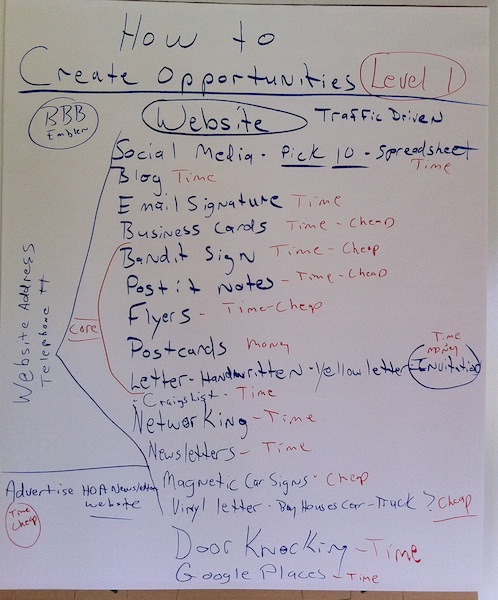 How to
Create Opportunities Level 1
BBB
Emblem
Website Traffic Driven
Social Media - Pick 10 - Spreadsheet
Time
Blog Time
Email Signature Time
Business Cards Time - Cheap
Bandit Sign Time - Cheap
Post it Notes - Time - Cheap
Flyers - Time - Cheap
Core
Postcards Money
Time
Money
Letter - Handwritten - Yellow letter - Invitation
- Craigslist - Time
Networking - Time
Newsletters - Time
Website Address
Telephone #
Advertise HOA Newsletter
website
Time
Cheap
Magnetic Car Signs - Cheap
Vinyl letter - Buy Houses Car - Truck ? Cheap
Door Knocking - Time
Google Places - Time